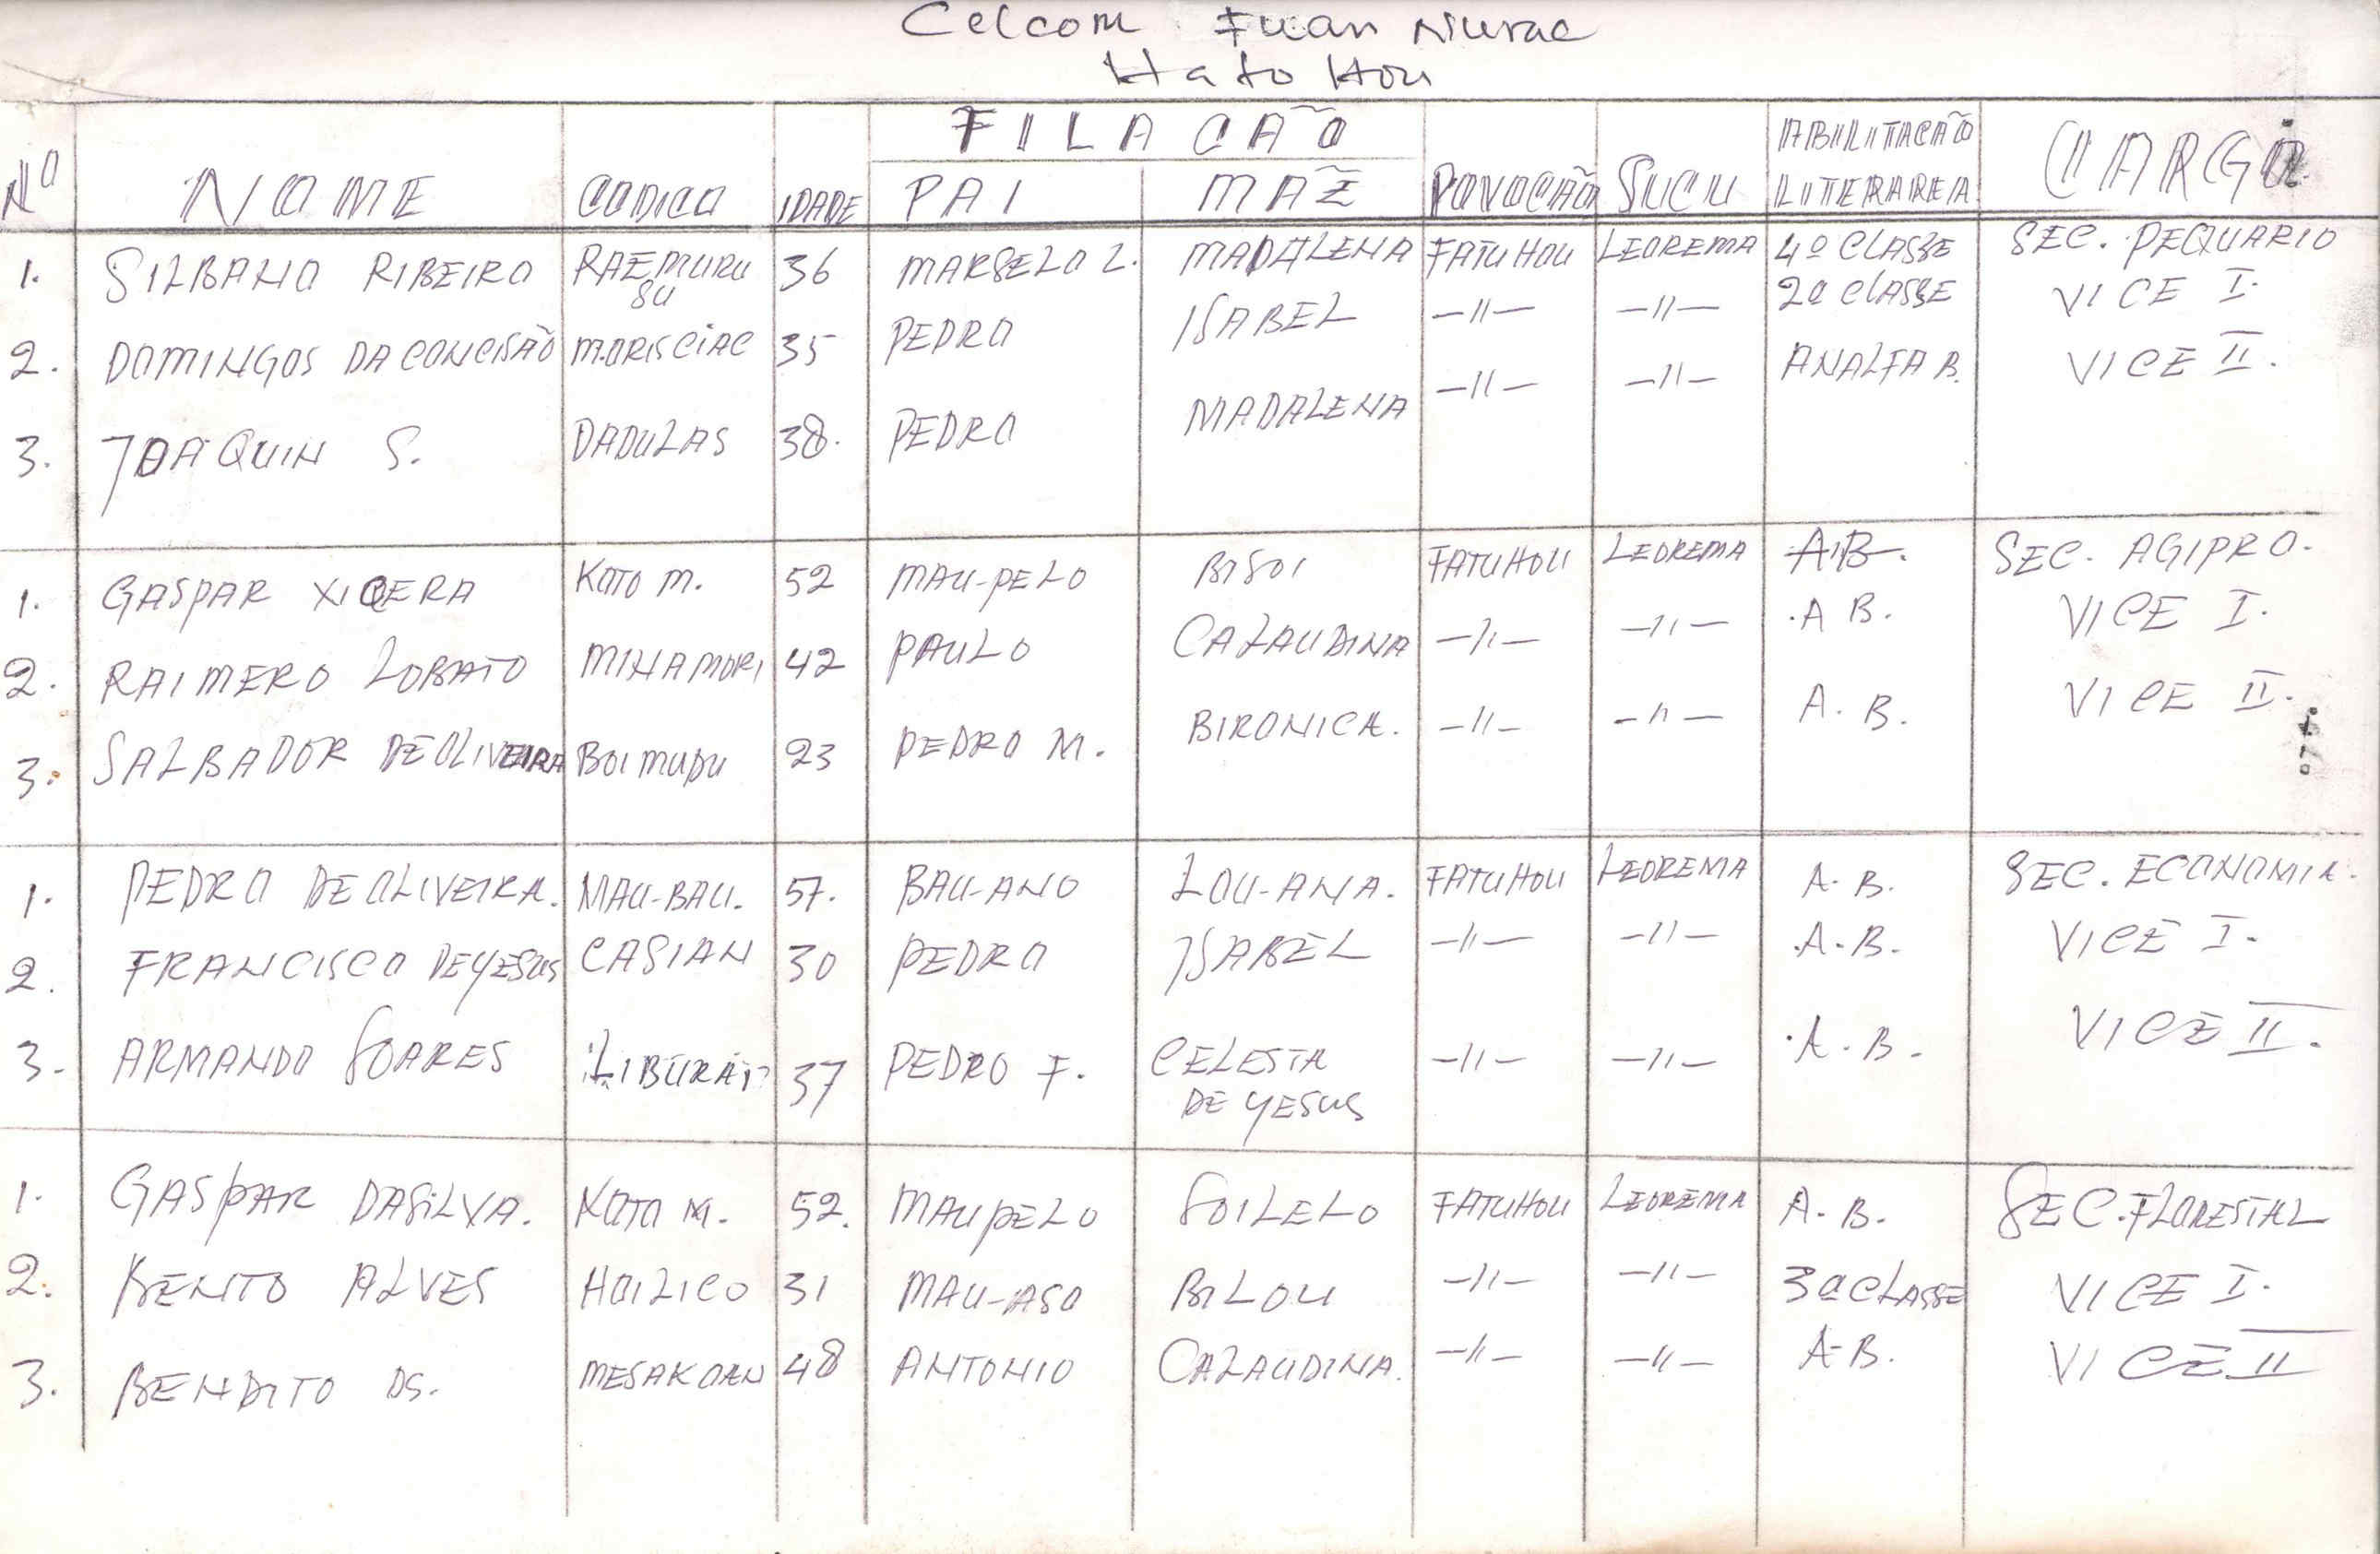 Celcom Fuan Niurae
Hato Hou
Nº NOME CODICO IDADE FILACÃO POVOCÃO SUCU ABILITACÃO LITERAREA CARGO
PAI MAẼ
1. SILBANO RIBEIRO RAEMURU SU 36 MARSELO L. MADALENA FATUHOU LEOREMA 4º CLASSE SEC. PEQUARIO
2. DOMINGOS DA CONCISÃO MORISCIAC 35 PEDRO ISABEL —11— —11— 2a CLASSE VICE I.
3. JOAQUIN S. DADULAS 38. PEDRO MADALENA —11— —11— ANALFA B. VICE II.
1. GASPAR KOTO M. 52 MAU-PELO BISOI FATUHOU LEOREMA A.B. SEC. AGIPRO.
2. RAIMERO LOBATO MINAMORI 42 PAULO CALAUDINA —11— —11— A B. VICE I.
3. SALBADOR DE OLIVEIRA BOIMUDU 23 PEDRO M. BIRONICA. —11— —11— A. B. VICE II.
1. PEDRO DE OLIVEIRA. MAU-BAU. 57. BAU-ANO LOU-ANA. FATUHOU LEOREMA A. B. SEC. ECONOMIA.
2. FRANCISCO DE YESUS CASIAN 30 PEDRO ISABEL —11— —11— A. B. VICE I.
3. ARMANDO SOARES 37 PEDRO F. CELESTA DE YESUS —11— —11— A. B. VICE II.
1. GASPAR DASILVA. KOTO M. 52. MAUPELO SOILELO FATUHOU LEOREMA A. B. SEC. FLORESTAL
2. BENTO ALVES HOILICO 31 MAU-ASO BILOU —11— —11— 3a CLASSE VICE I.
3. BENDITO DS. MESAKOAN 48 ANTONIO CALAUDINA. —11— —11— A-B. VICE II